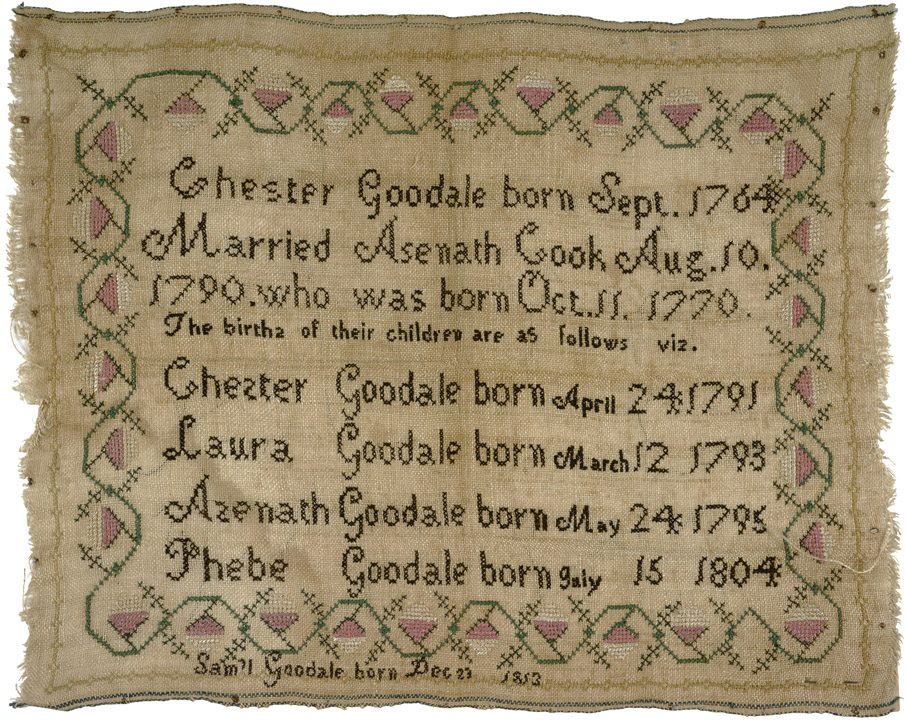 Chester Goodale born Sept. 1764
Married Asenath Cook Aug. 10.
1790. who was born Oct. 11. 1770.
The births of their children are as follows viz.
Chester Goodale born April 24 1791
Laura Goodale born March 12 1793
Azenath Goodale born May 24 1795
Phebe Goodale born July 15 1804
Sam'll Goodale born Dec 23 1813